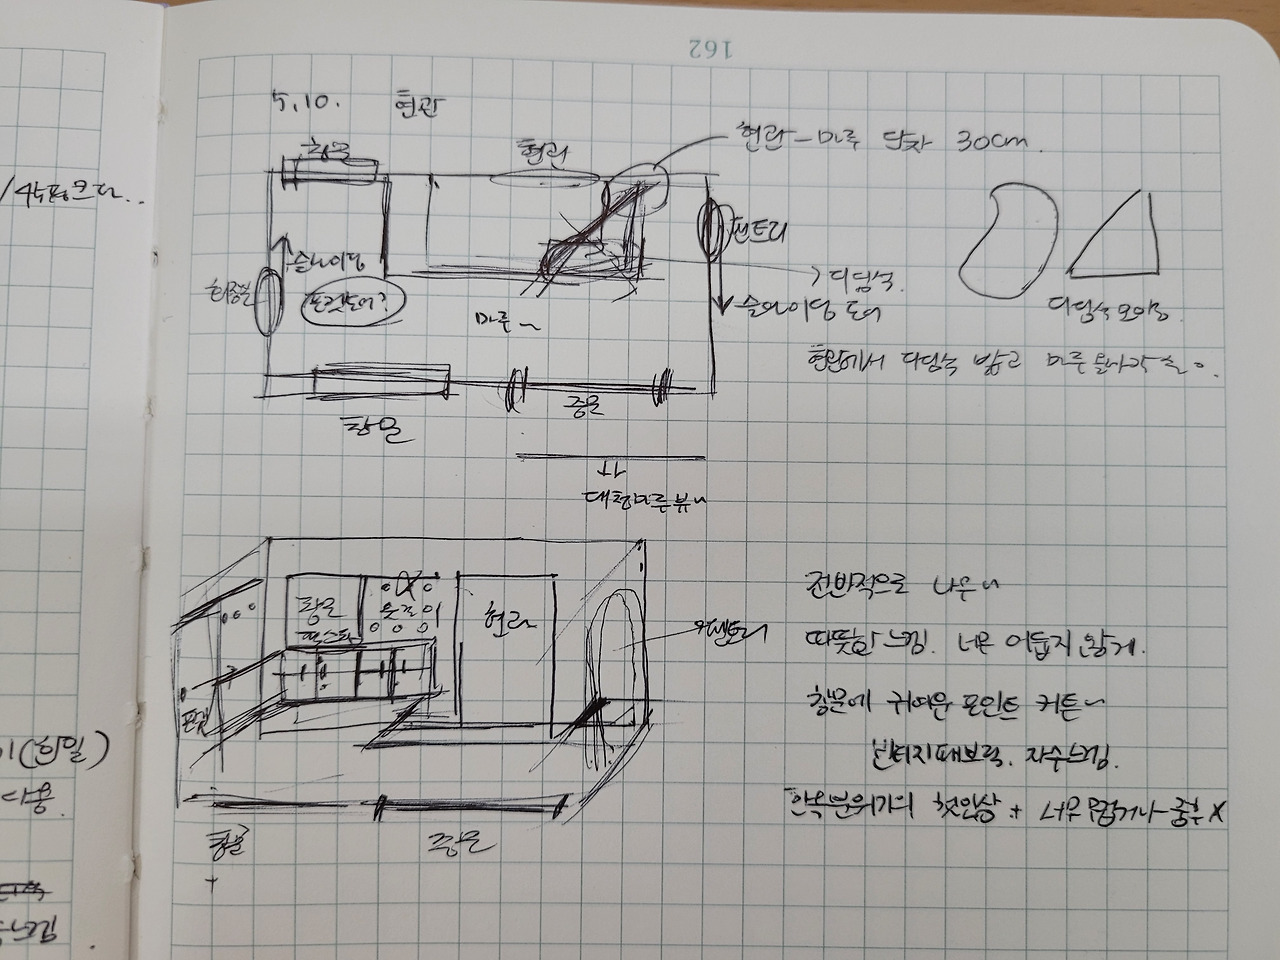 162
5.10. 현관
창문
현관
현관 - 마루 단차 30cm.
팬트리
슬라이딩
화장실
포켓도어?
마루~
> 디딤석.
슬라이딩 도어
디딤석 모양.
현관에서 디딤석 밟고 마루 올라가
창문
중문
대청마루뷰~
창문
옷걸이
현관
팬트리
전반적으로 나무~
따뜻한 느낌. 너무 어둡지 않게.
창문에 귀여운 포인트 커튼~
빈티지패브릭. 자수느낌.
한옥분위기의 첫인상 + 너무 무겁거나 X
창문
중문
+
(화일)
사용.